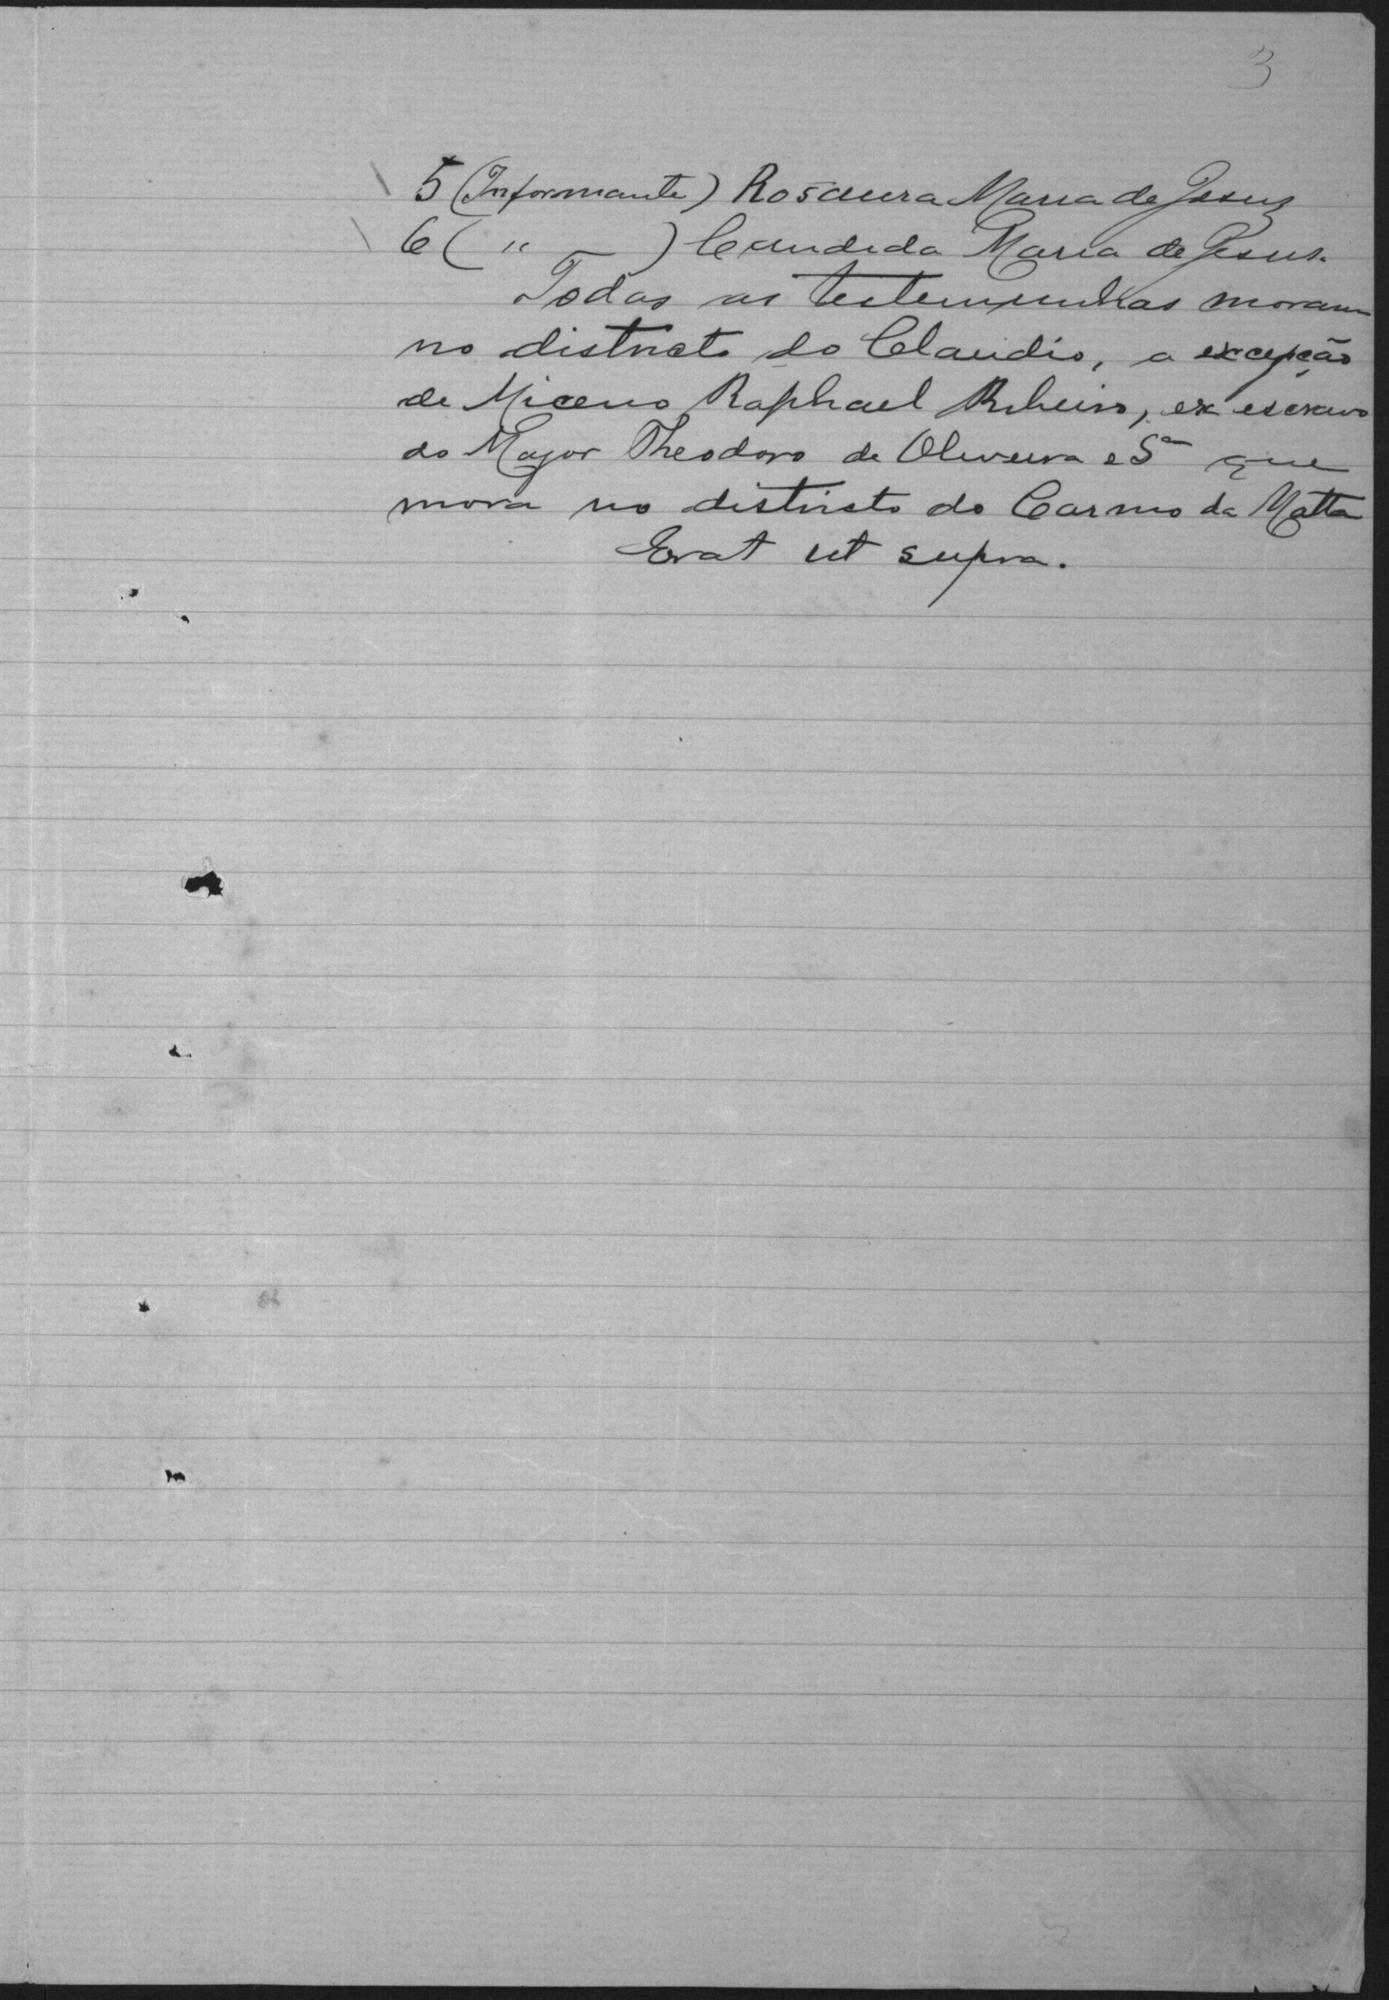 3
5 (Informante) Rosaura Maria de Jesus
6 ( " ) Candida Maria de Jesus.
Todas as testemunhas moram
no districto do Claudio, a excepção
de Miceno Raphael Ribeiro, ex escravo
do Major Theodoro de Oliveira e Sª que
mora no districto do Carmo da Matta
Erat ut supra.